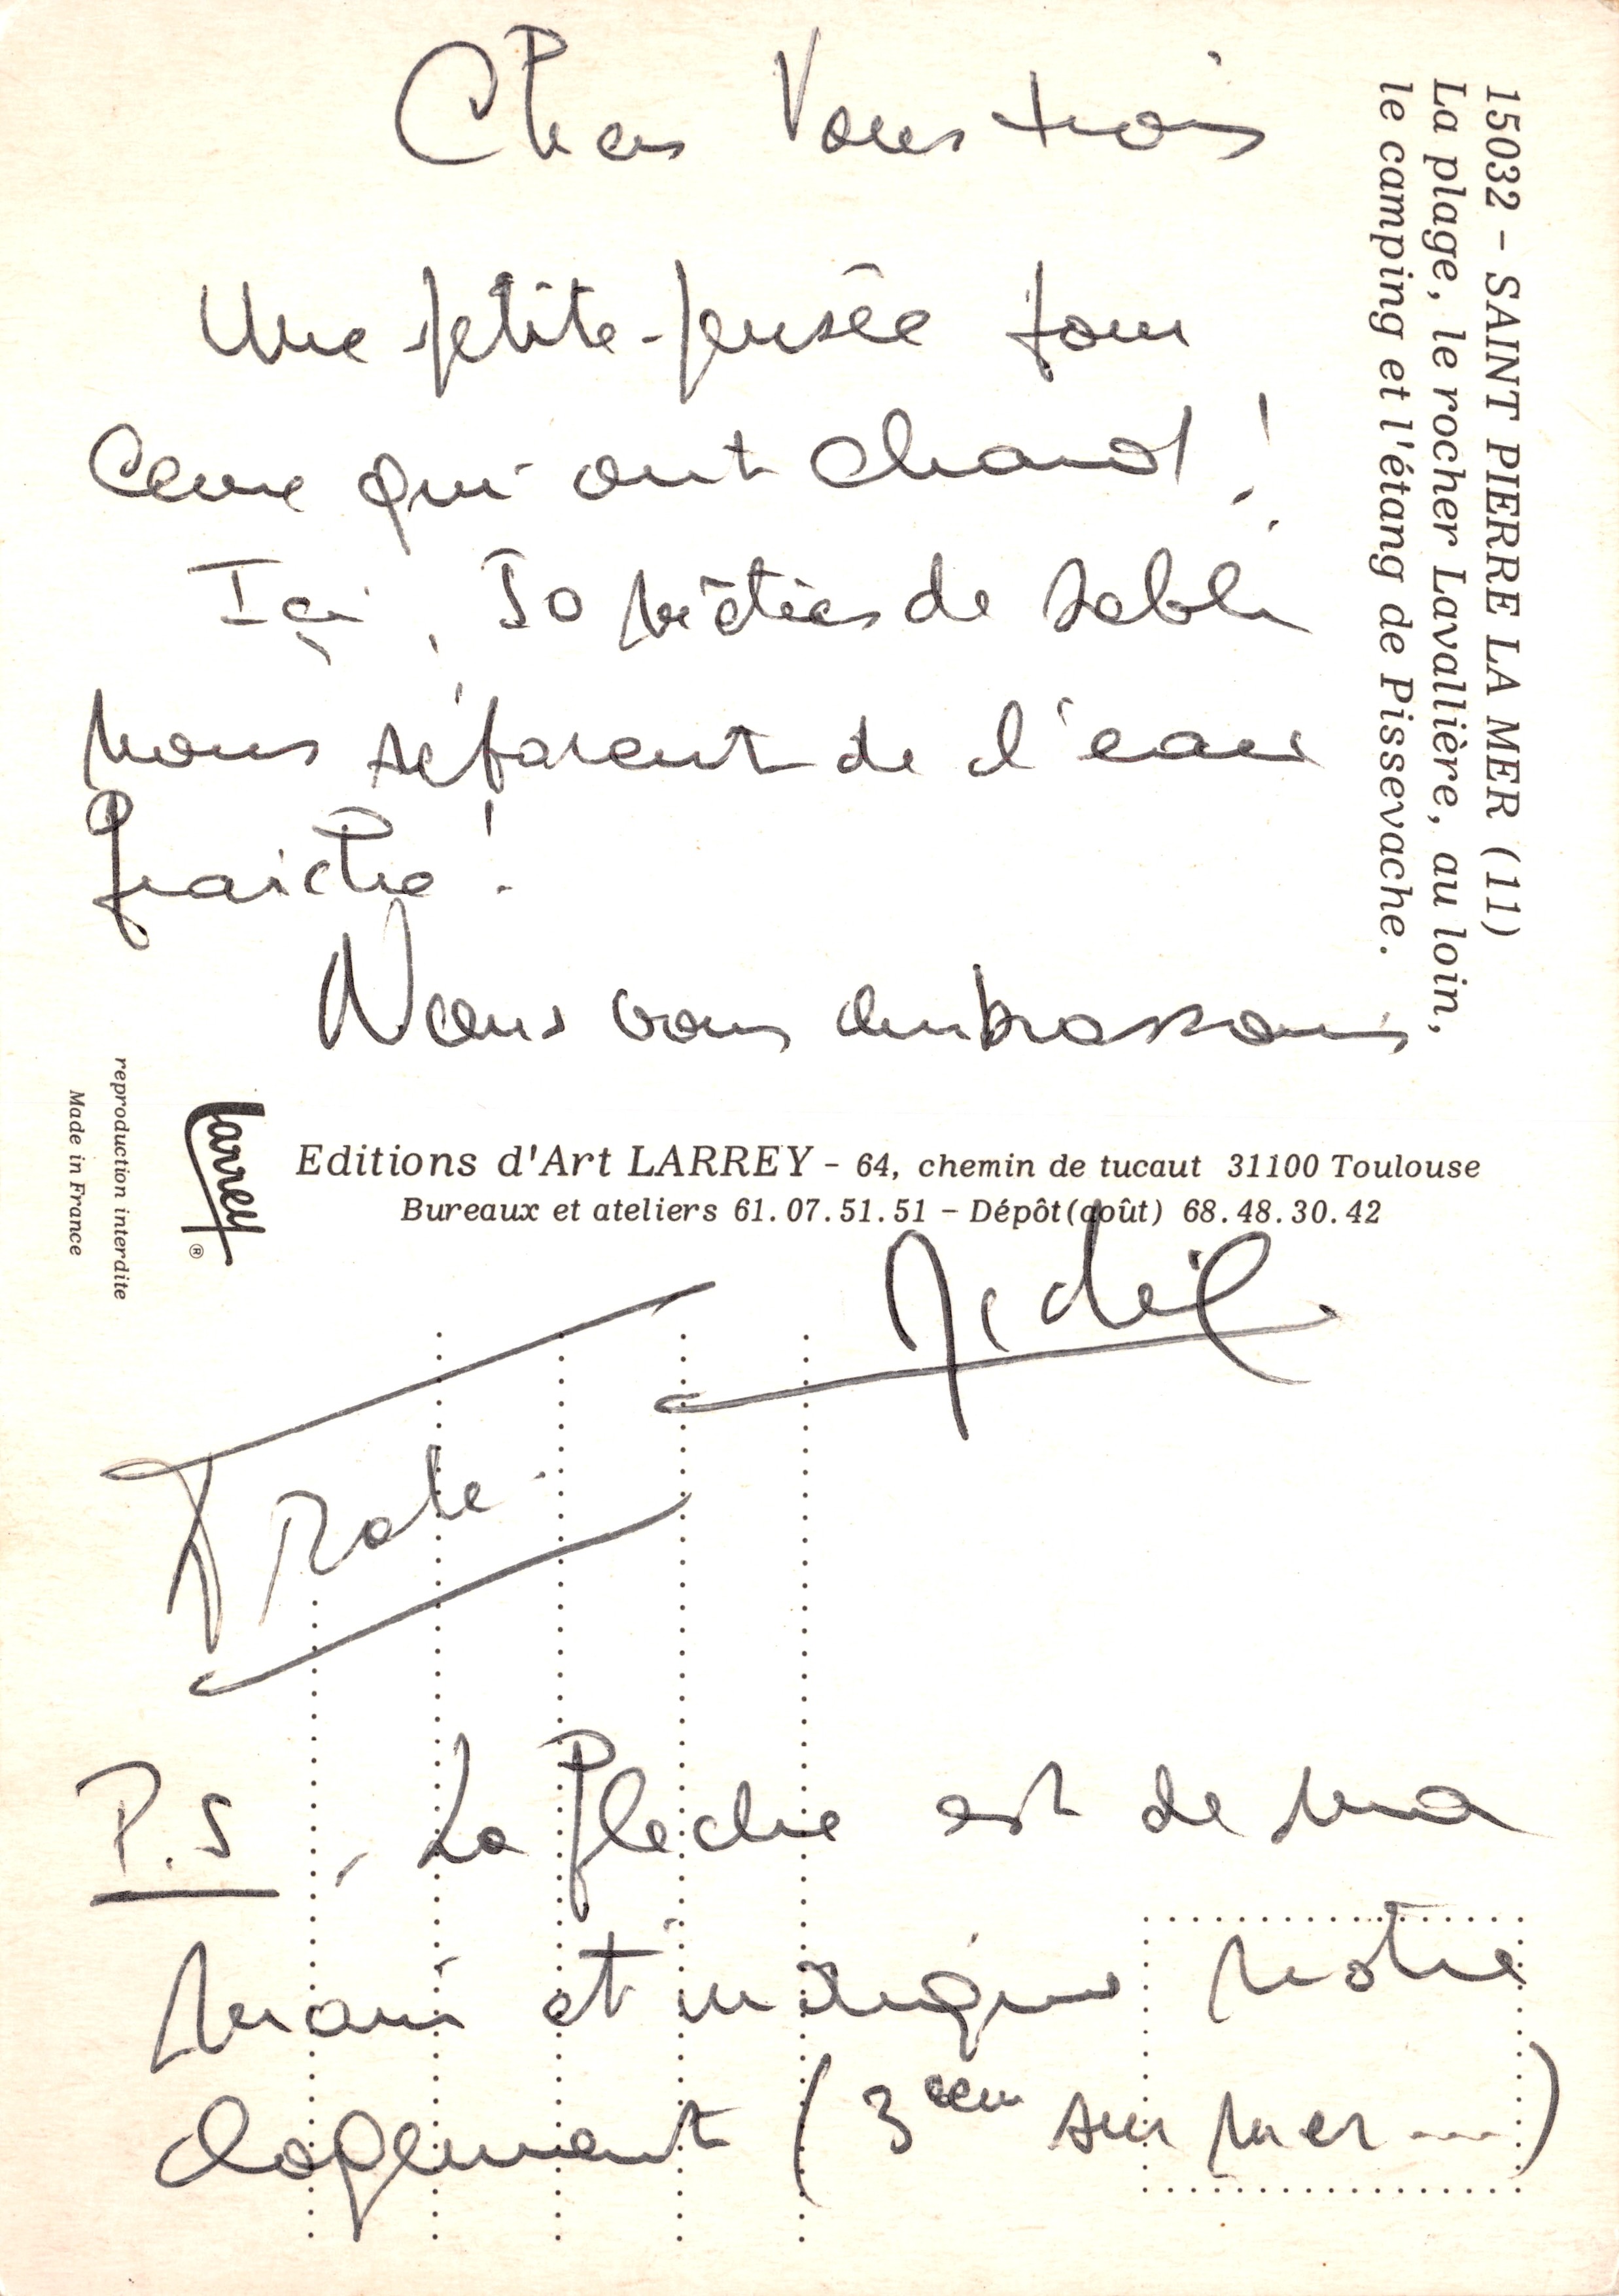 Chers Vous trois
Une petite pensée pour
Ceux qui ont chaud !
Içi, 50 mètres de sable
nous séparent de l'eau
fraiche !
Nous vous embrassons
15032 - SAINT PIERRE LA MER (11)
La plage, le rocher Lavallière, au loin,
le camping et l'étang de Pissevache.
Larrey ®
reproduction interdite
Made in France
Editions d'Art LARREY - 64, chemin de tucaut 31100 Toulouse
Bureaux et ateliers 61.07.51.51 - Dépôt (août) 68.48.30.42
P.S. La fleche est de mon
mari et indique notre
logement (3ème sur mer ...)